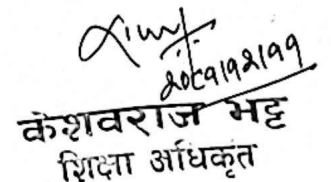 २०८१।१२।११
केशवराज भट्ट
शिक्षा अधिकृत